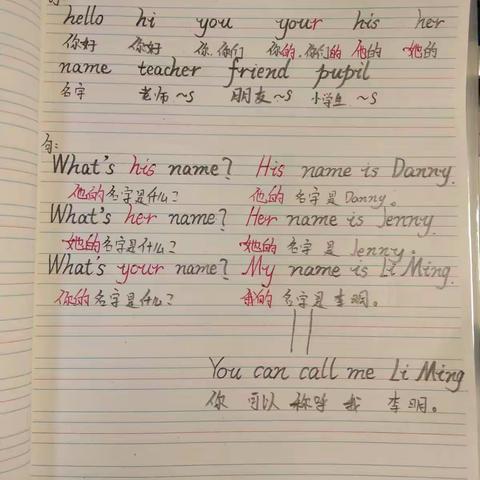 hello hi you your his her
你好 你好 你.你们 你的.你们的 他的 她的
name teacher friend pupil
名字 老师~s 朋友~s 小学生~s
句:
What's his name? His name is Danny.
他的名字是什么? 他的 名字 是 Danny。
What's her name? Her name is Jenny.
她的名字是什么? 她的 名字 是 Jenny.
What's your name? My name is Li Ming.
你的名字是什么? 我的 名字是 李明。
You can call me Li Ming
你 可以 称呼 我 李明。